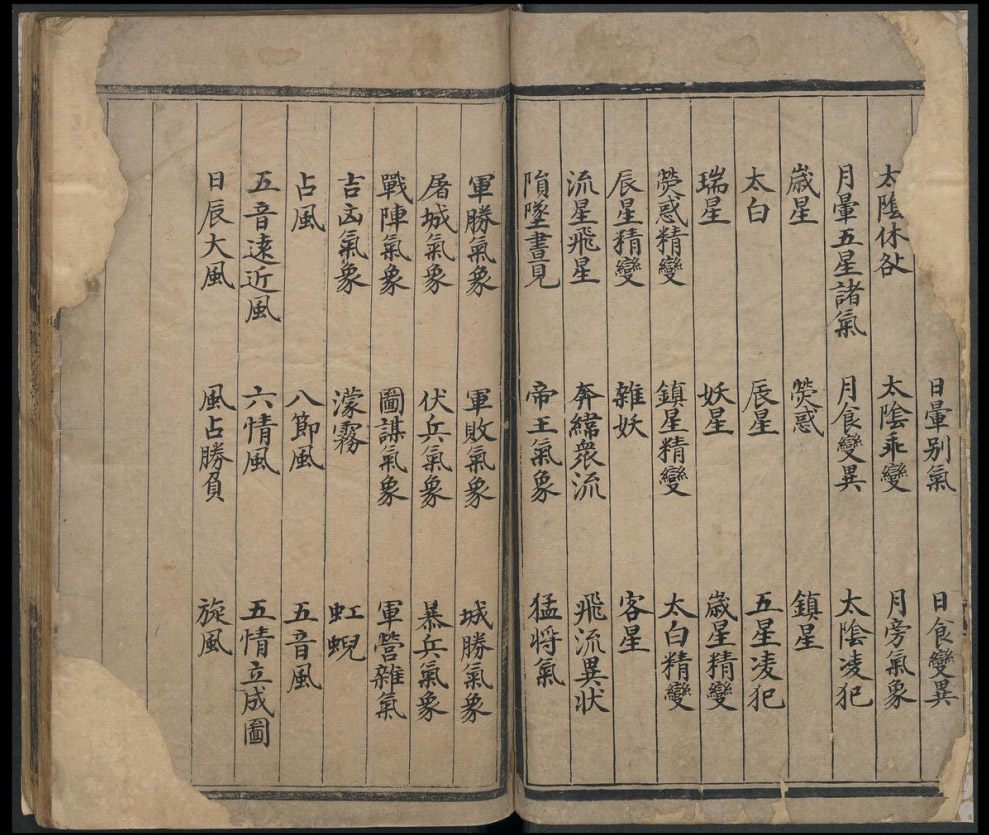 日暈别氣 日食變異
太陰休咎 太陰乖變 月旁氣象
月暈五星諸氣 月食變異 太陰凌犯
嵗星 熒惑 鎮星
太白 辰星 五星凌犯
瑞星 妖星 嵗星精變
熒惑精變 鎮星精變 太白精變
辰星精變 雜妖 客星
流星飛星 奔緯衆流 飛流異状
隕墜晝見 帝王氣象 猛将氣
軍勝氣象 軍敗氣象 城勝氣象
屠城氣象 伏兵氣象 暴兵氣象
戰陣氣象 圖謀氣象 軍營雜氣
吉凶氣象 濛霧 虹蜺
占風 八節風 五音風
五音遠近風 六情風 五情立成圖
日辰大風 風占勝負 旋風